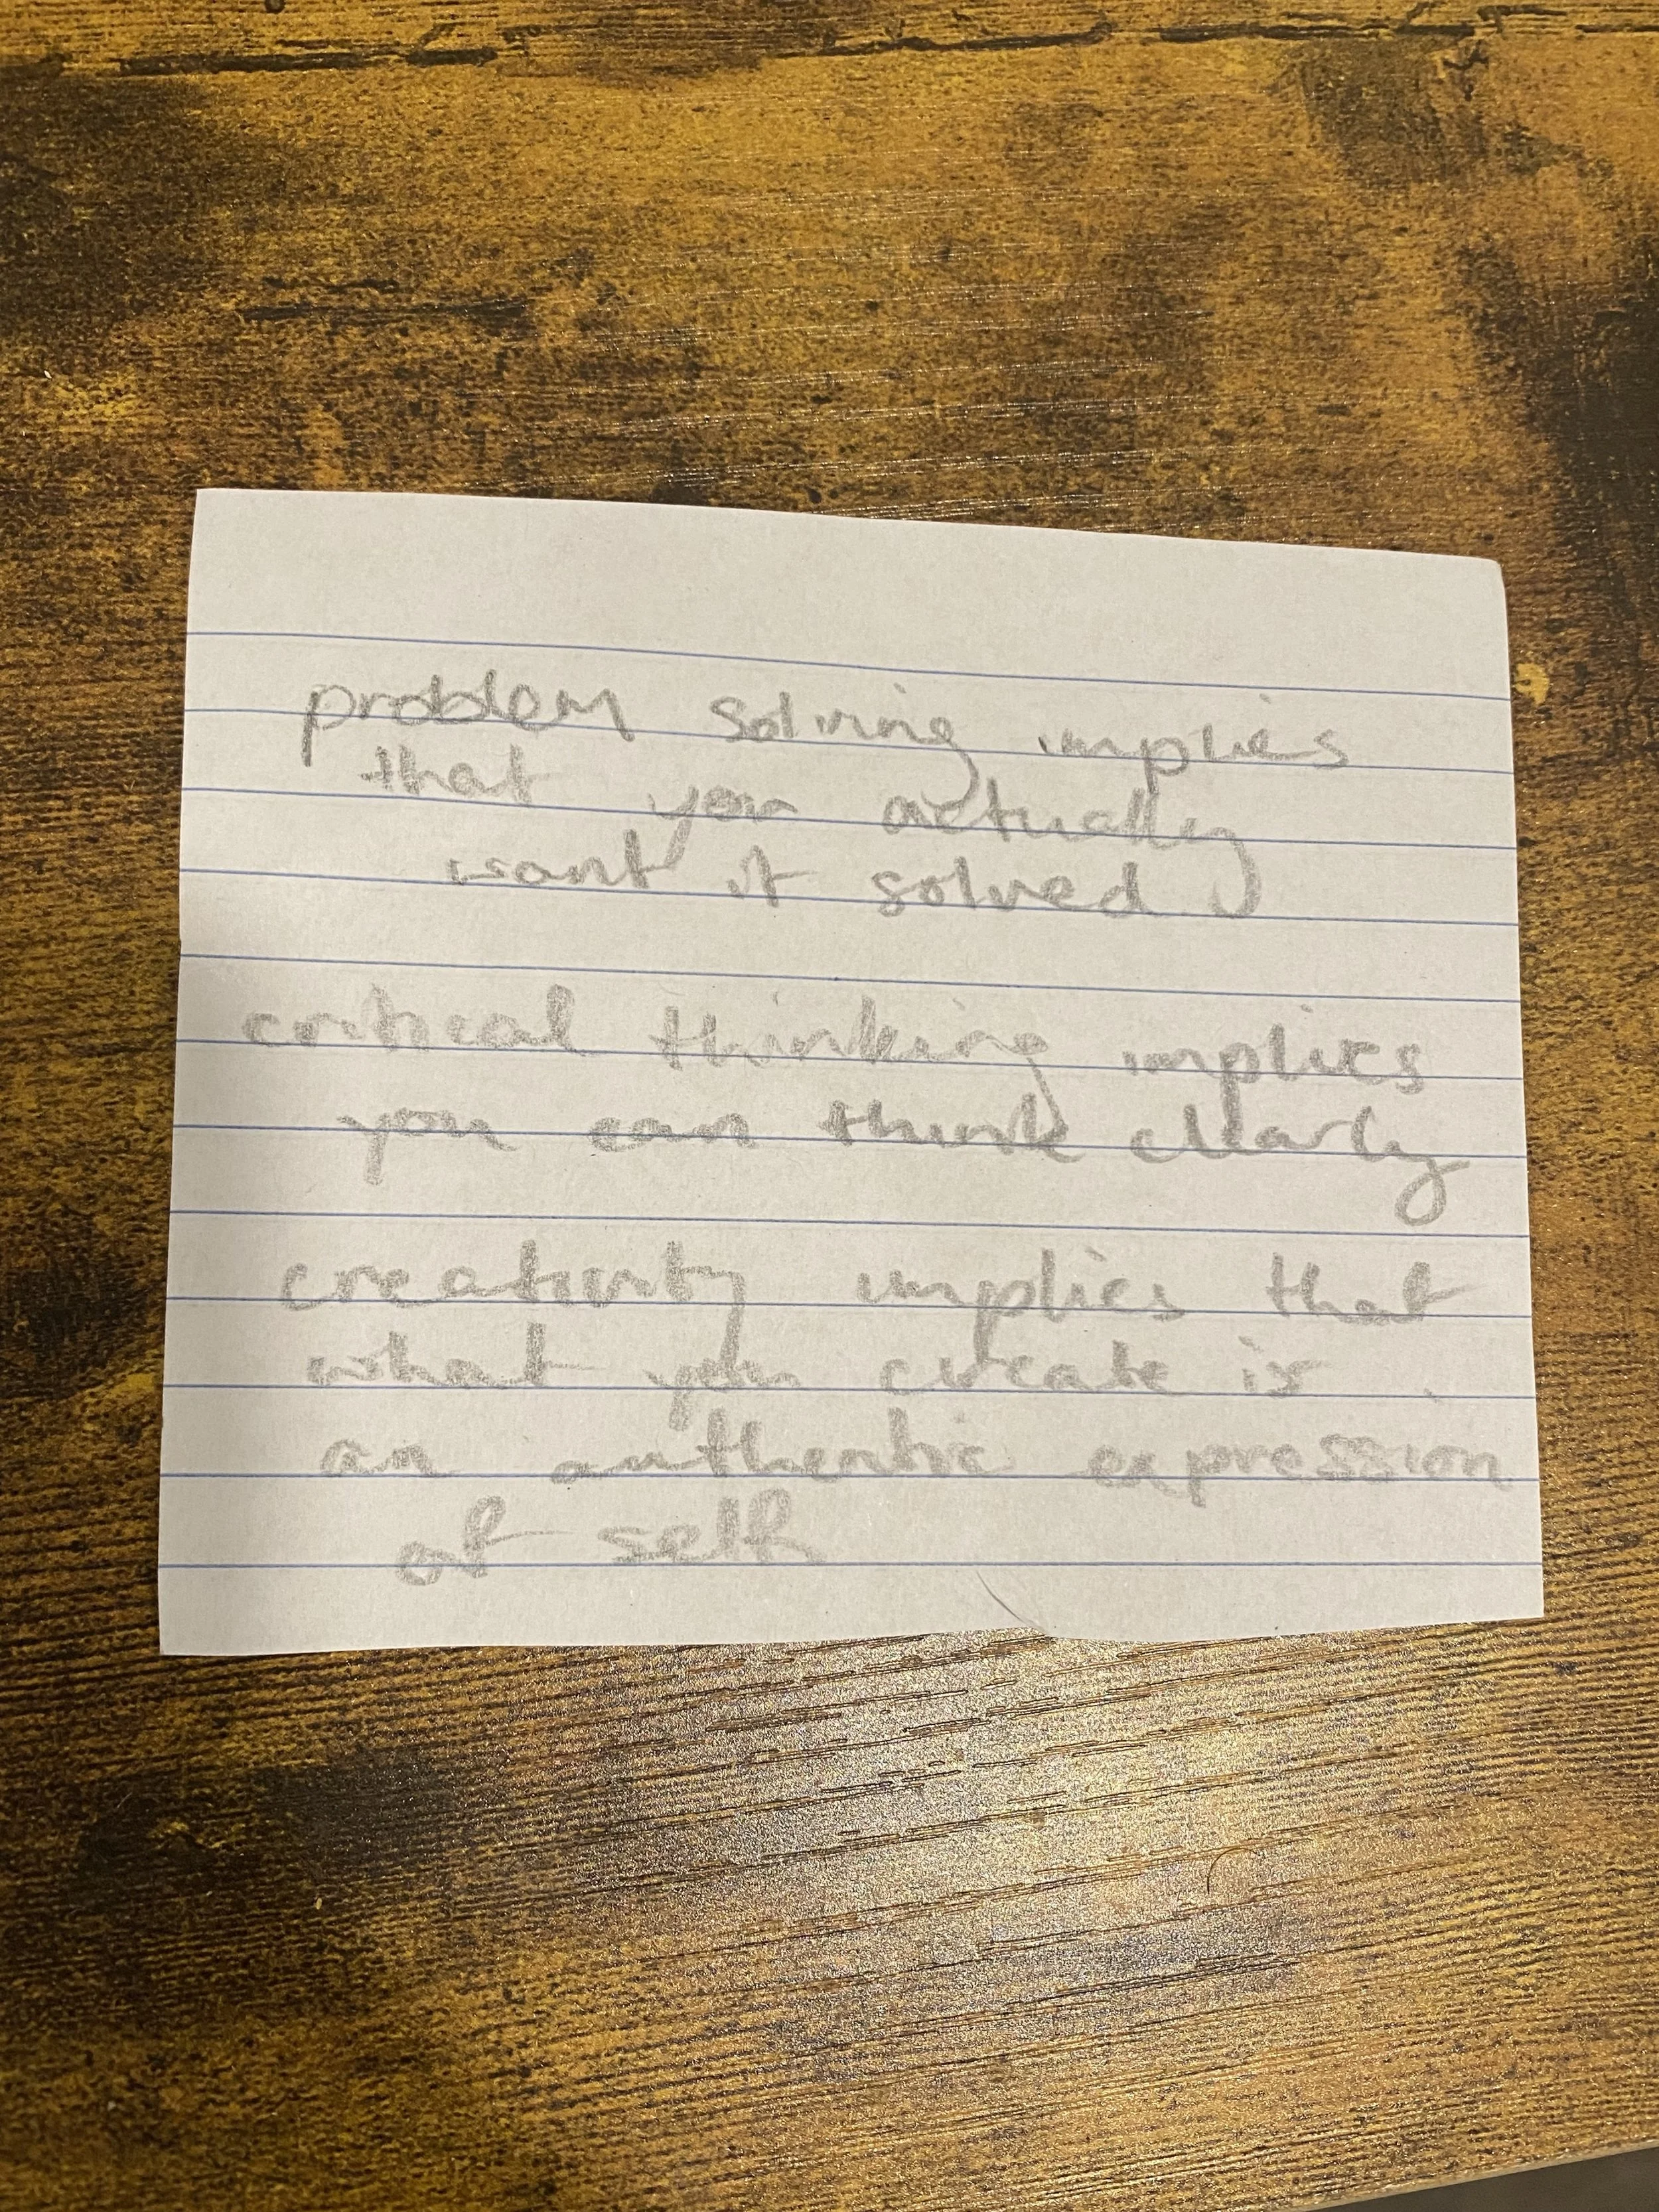 problem solving implies
that you actually
want it solved
critical thinking implies
you can think clearly
creativity implies that
what you create is
an authentic expression
of self